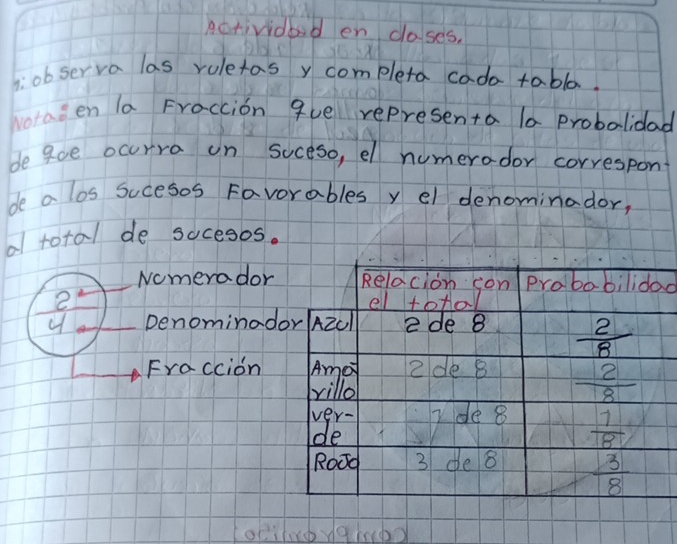 Actividad en clases.
1: observa las ruletas y completa cada tabla.
Nota: en la Fracción que representa la Probalidad
de que ocurra un suceso, el numerador correspon-
de a los sucesos Favorables y el denominador,
al total de sucesos.
2 Numerador
4 Denominador
Fracción
Relación con el total Probabilidad
Azul 2 de 8 2/8
Amarillo 2 de 8 2/8
ver-
de 1 de 8 1/8
Rojo 3 de 8 3/8